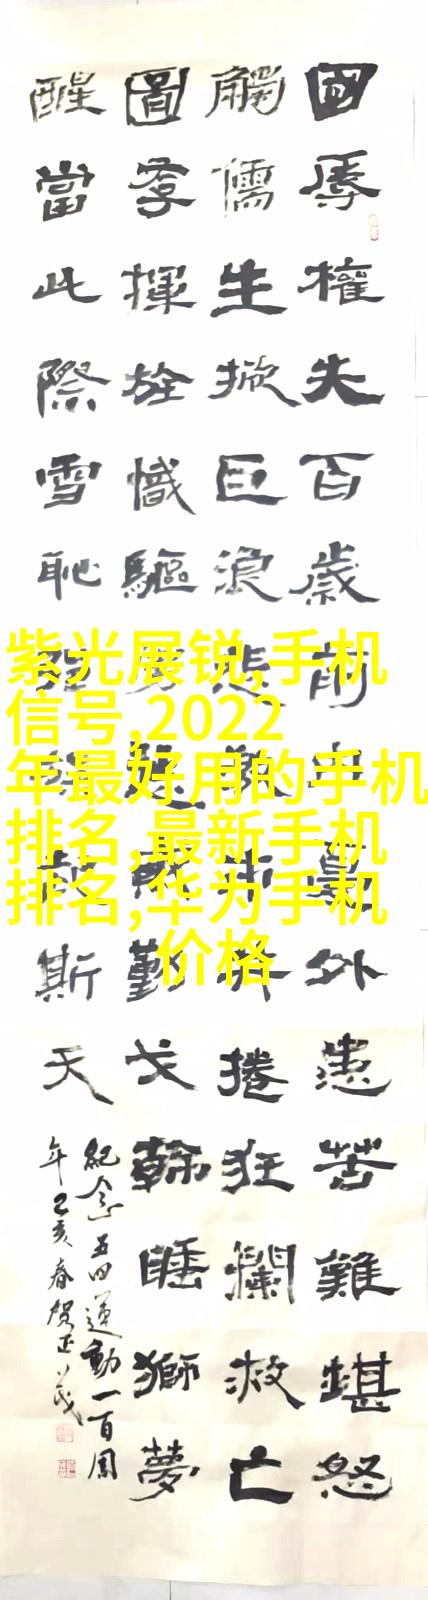 國辱權失百歲前憂外患苦難堪怒
觸儒生掀巨浪悲捲狂瀾救亡
圖存揮旌幟驅勤戈睡獅夢
醒當此際雪恥斯天
紀念五四運動一百周
年己亥春贺正
紫光展锐,手机
信号,2022
年最好用的手机
排名,最新手机
排名,华为手机
价格